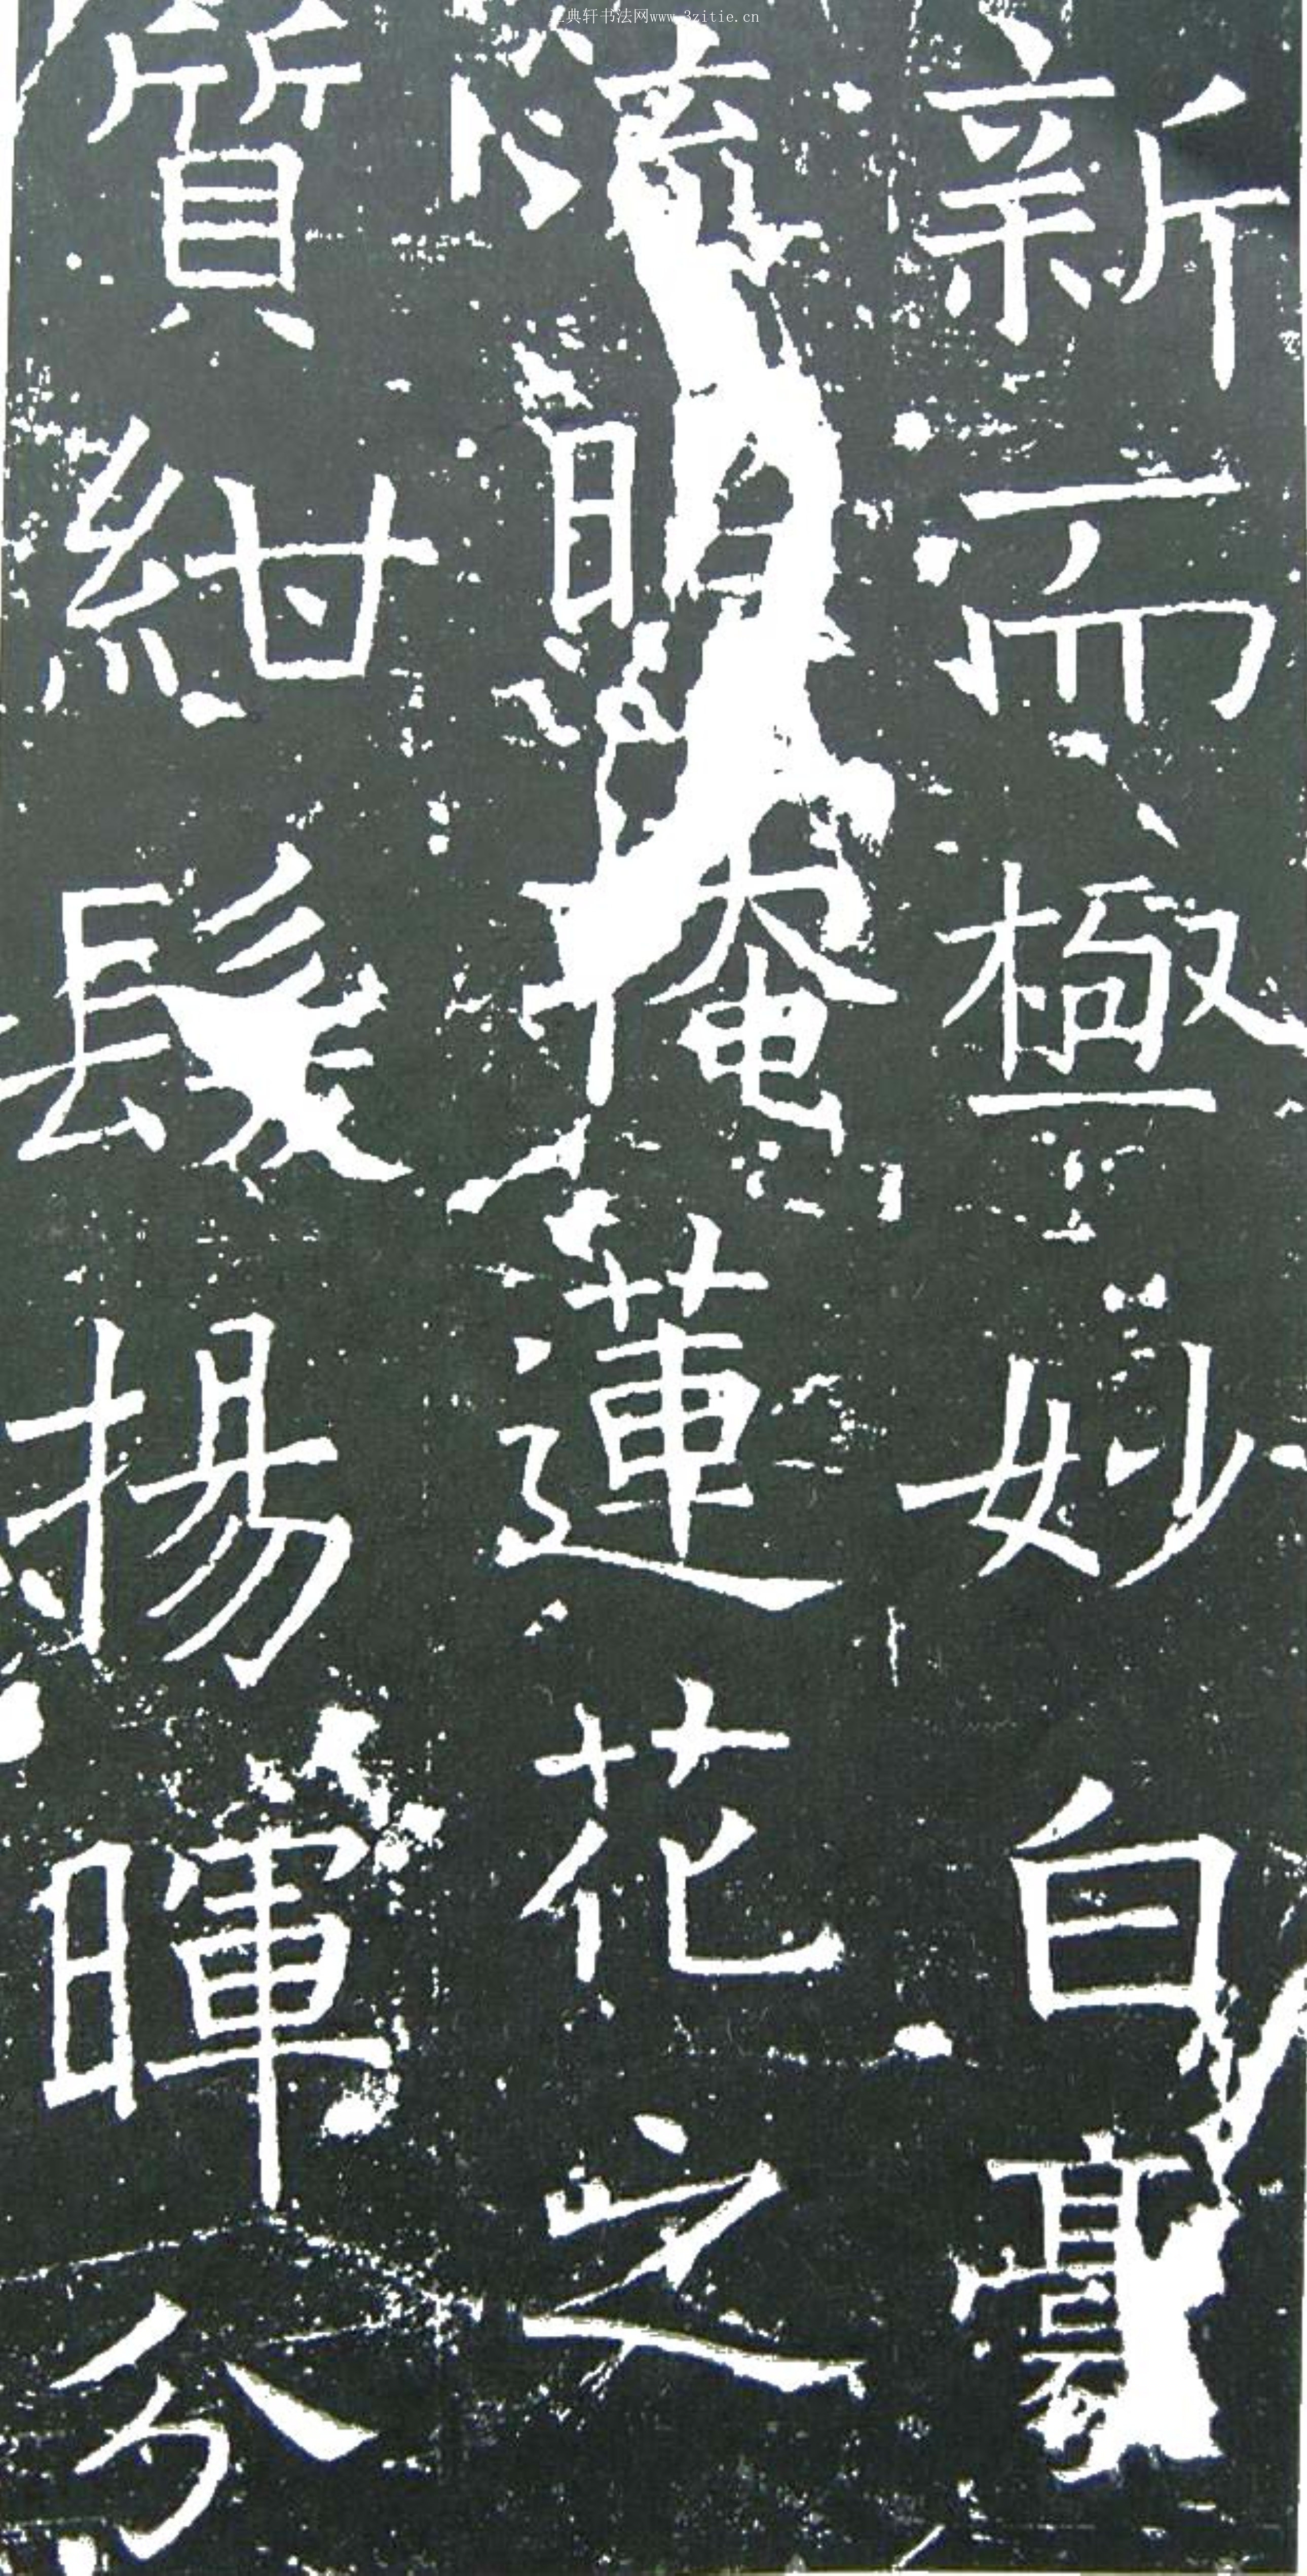 新而極妙白毫
流照掩蓮花之
質紺髮揚暉分
典轩书法网www.3zitie.cn